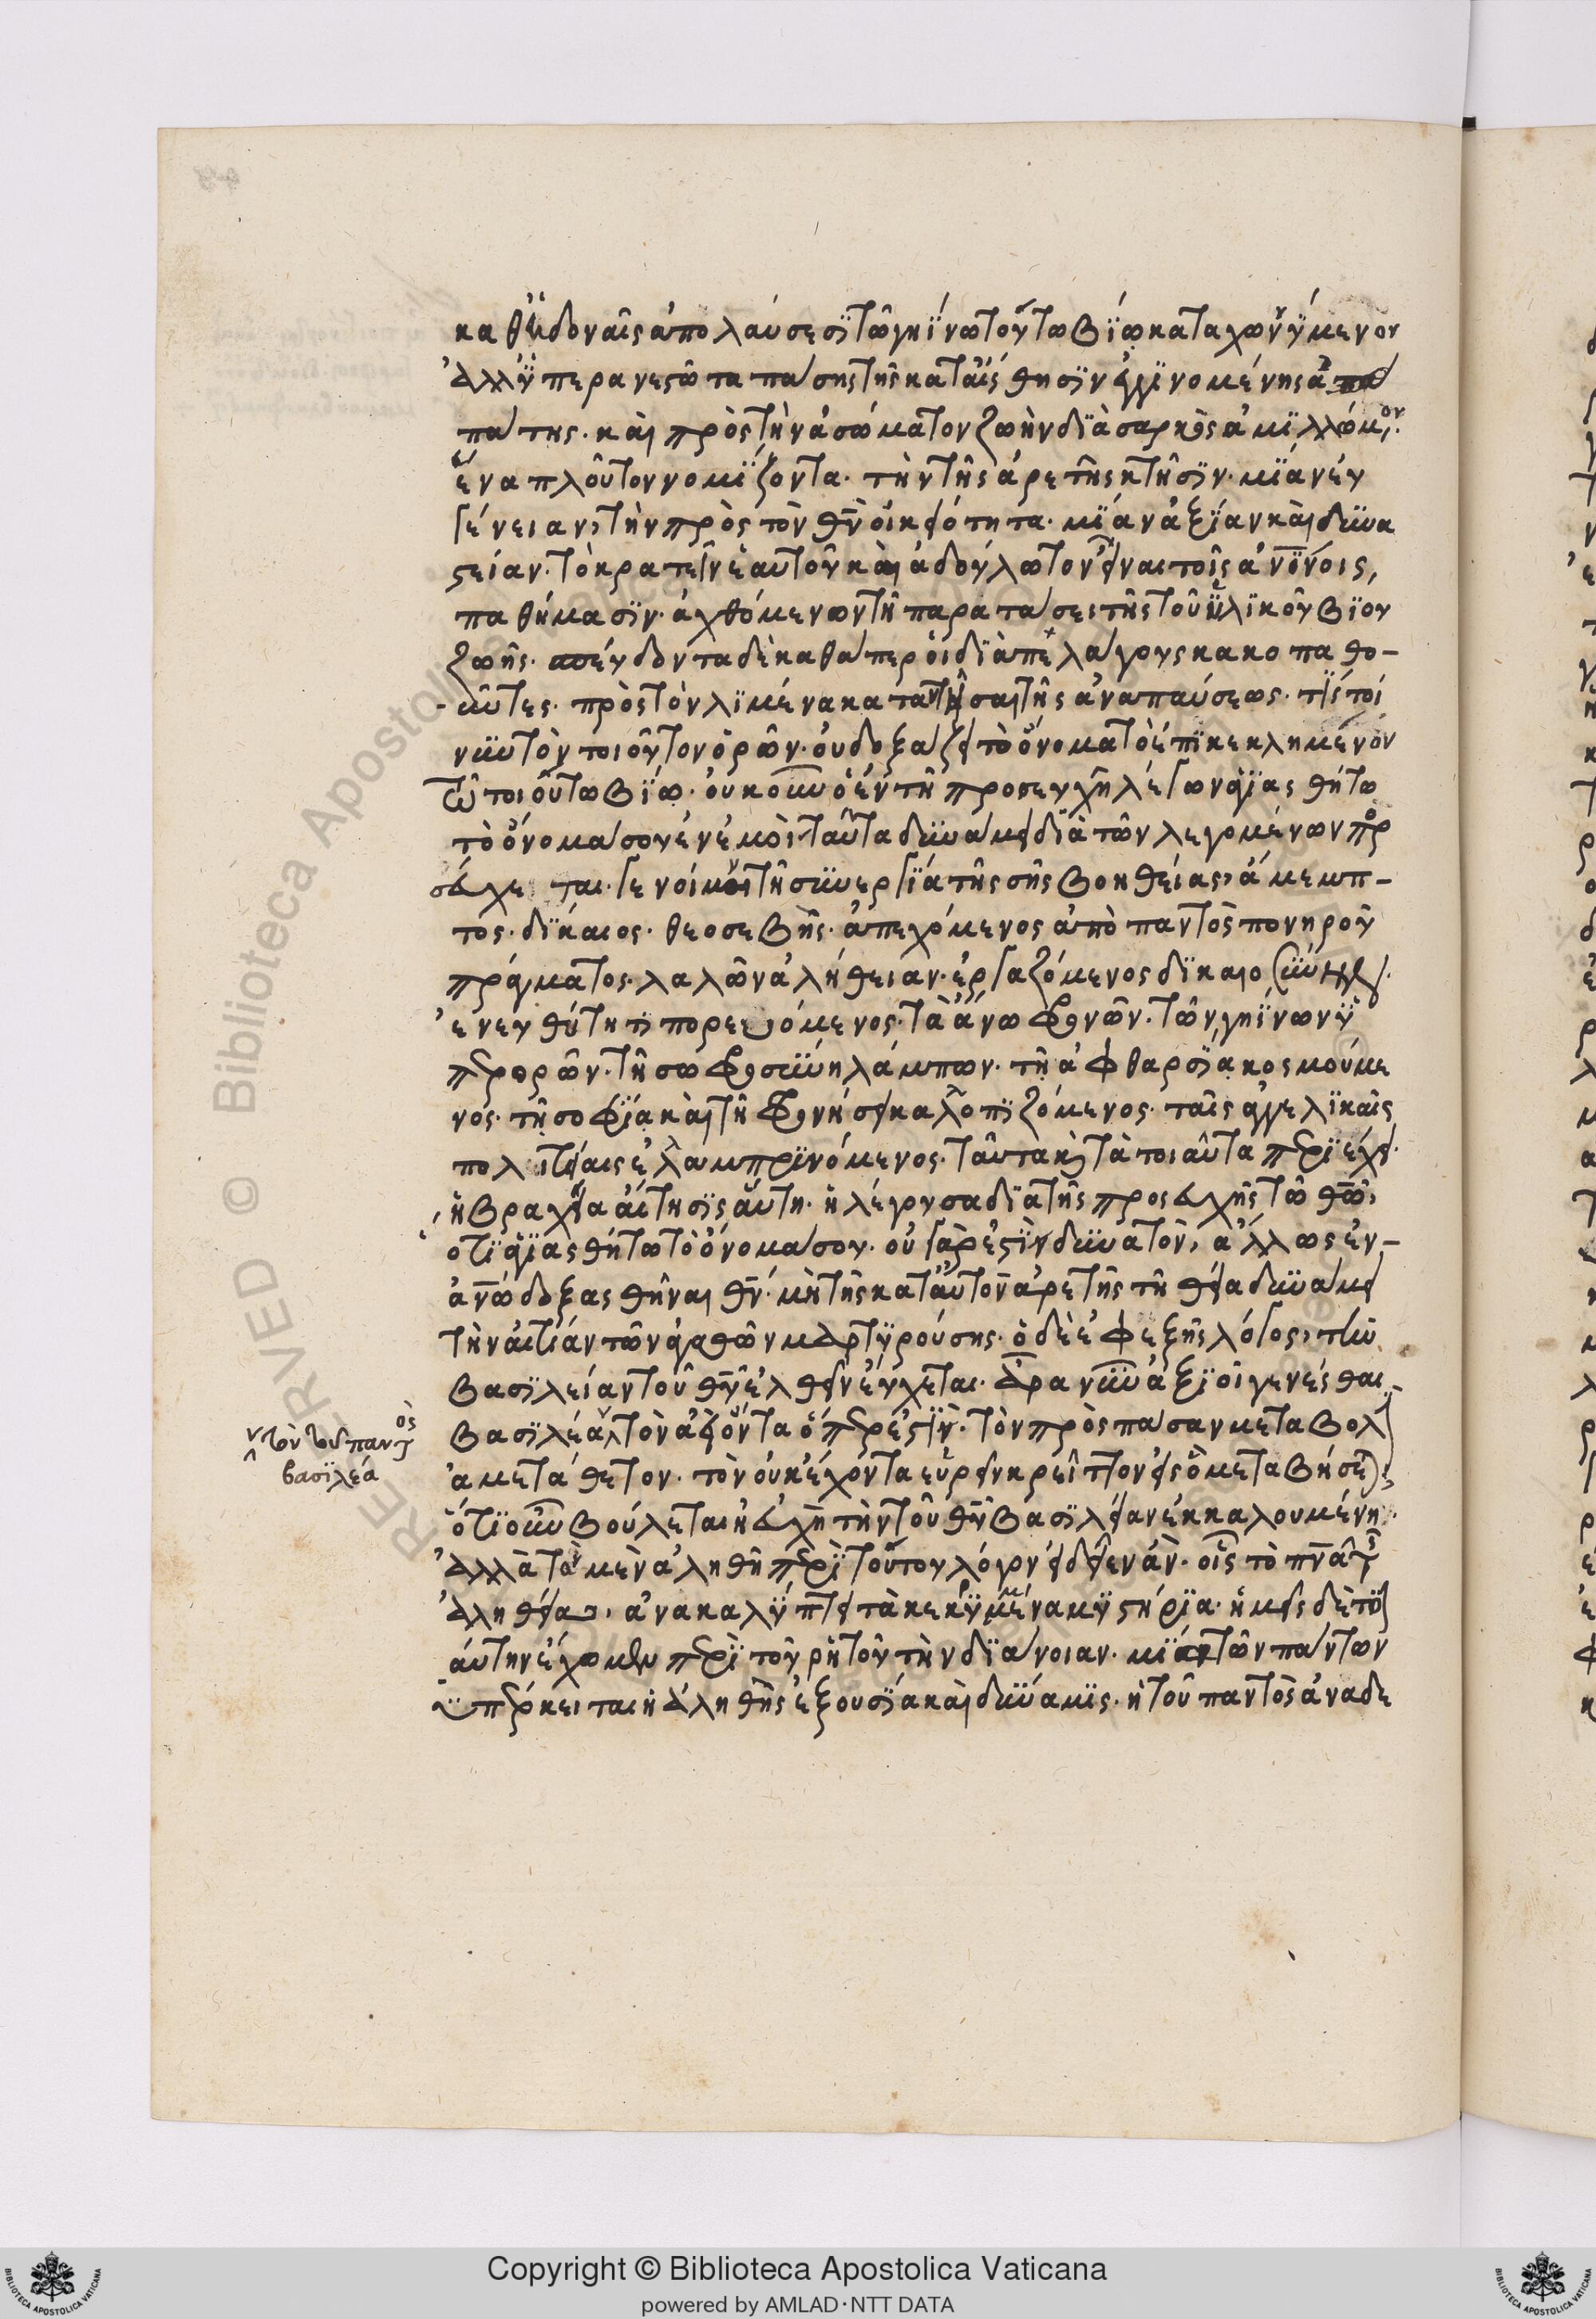 καθ' ἡδοναῖς ἀπολαύσεσϊ τῶ γηΐνω τούτω βΐω καταχωννύμενον
ἀλλ' ὑπερανεστῶτα πάσης τῆς κατ' αἴσθησϊν ἐγγϊνομένης ἀ
πάτης. καὶ πρὸς τὴν ἀσώματον ζωὴν δϊὰ σαρκὸς ἁμϊλλώμενον.
ἕνα πλοῦτον νομΐζοντα. τὴν τῆς ἀρετῆς κτῆσϊν. μΐαν εὐ
γένειαν, τὴν πρὸς τὸν θ̅ν̅ οἰκειότητα. μΐαν ἀξΐαν καὶ δυνα
στείαν. τὸ κρατεῖν ἑαυτοῦ καὶ ἀδούλωτον εἶναι τοῖς ἀ̅ν̅ϊνοις,
παθήμασϊν. ἀχθόμενον τῆ παρατάσει τῆς τοῦ ὑλϊκοῦ βΐου
ζωῆς. σπεύδοντα δὲ καθάπερ οἱ δϊὰ πελάγους κακοπαθο-
-ῦντες. πρὸς τὸν λϊμένα καταντῆσαι τῆς ἀναπαύσεως. τΐς τοί
νυν τὸν τοιοῦτον ὁρῶν. οὐ δοξάζει τὸ ὄνομα τὸ ἐπϊκεκλημένον
τῶ τοιούτω βΐω. οὐκοῦν ὁ ἐν τῆ προσευχῆ λέγων ἁγϊασθήτω
τὸ ὄνομά σου ἐν ἐμοὶ. ταῦτα δυνάμει δϊὰ τῶν λεγομένων προ
σεύχεται. γενοίμην τῆ συνεργΐα τῆς σῆς βοηθείας, ἄμεμπ-
τος. δΐκαιος. θεοσεβῆς. ἀπεχόμενος ἀπὸ παντὸς πονηροῦ
πράγματος. λαλῶν ἀλήθειαν. ἐργαζόμενος δϊκαιοσύνην.
ἐν εὐθύτητϊ πορευόμενος. τὰ ἄνω φρονῶν. τῶν γηΐνων ὑ
περορῶν. τῆ σωφροσύνη λάμπων. τῆ ἀφθαρσΐα κοσμούμε
νος. τῆ σοφΐα καὶ τῆ φρονήσει καλλωπϊζόμενος. ταῖς ἀγγελϊκαῖς
πολιτείαις ἐλλαμπρϊνόμενος. ταῦτα καὶ τὰ τοιαῦτα περιέχει.
ἡ βραχεῖα αἴτησϊς αὕτη. ἡ λέγουσα δϊὰ τῆς προσευχῆς τῶ θ̅ω̅,
ὅτϊ ἁγϊασθήτω τὸ ὄνομά σου. οὐ γὰρ ἐστὶν δυνατὸν, ἄλλως ἐν-
ἀ̅ν̅ω δοξασθῆναι θ̅ν̅. μὴ τῆς κατ' αὐτὸν ἀρετῆς τῆ θεία δυνάμει
τὴν αἰτίαν τῶν ἀγαθῶν μαρτϋρούσης. ὁ δὲ ἐφεξῆς λόγος, τὴν
βασϊλείαν τοῦ θ̅υ̅ ἐλθεῖν εὔχεται. ἆρα νῦν ἀξϊοῖ γενέσθαι
βασϊλέα τὸν ἀεὶ ὄντα ὅπερ ἐστΐν. τὸν πρὸς πᾶσαν μεταβολὴν
ἀμετάθετον. τὸν οὐκ ἔχοντα εὑρεῖν κρεῖττον εἰς ὃ μεταβήσεται,
ὅτϊ οὖν βούλεται ἡ εὐχὴ τὴν τοῦ θ̅υ̅ βασϊλείαν ἐκκαλουμένη.
ἀλλὰ τὸν μὲν ἀληθῆ περὶ τούτου λόγον εἰδεῖεν ἂν. οἷς τὸ π̅ν̅α̅ τῆς
ἀληθείας. ἀνακαλύπτει τὰ κεκρυμμένα μϋστήρϊα. ἡμεῖς δὲ τοι
αύτην ἔχομεν περὶ τοῦ ῥητοῦ τὴν δϊάνοιαν. μΐα τῶν πάντων
ὑπέρκειται ἡ ἀληθὴς ἐξουσΐα καὶ δύναμϊς. ἡ τοῦ παντὸς ἀναδε
τὸν τοῦ παντὸς
βασϊλέα
Copyright © Biblioteca Apostolica Vaticana
powered by AMLAD·NTT DATA